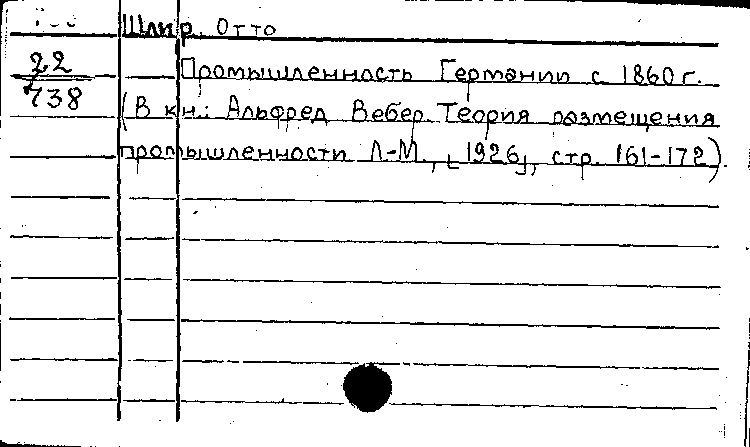 Шлир. Отто
22
738
Промышленность Германии с 1860 г.
(В кн.: Альфред Вебер. Теория размещения
промышленности Л-М., [1926], стр. 161-172).